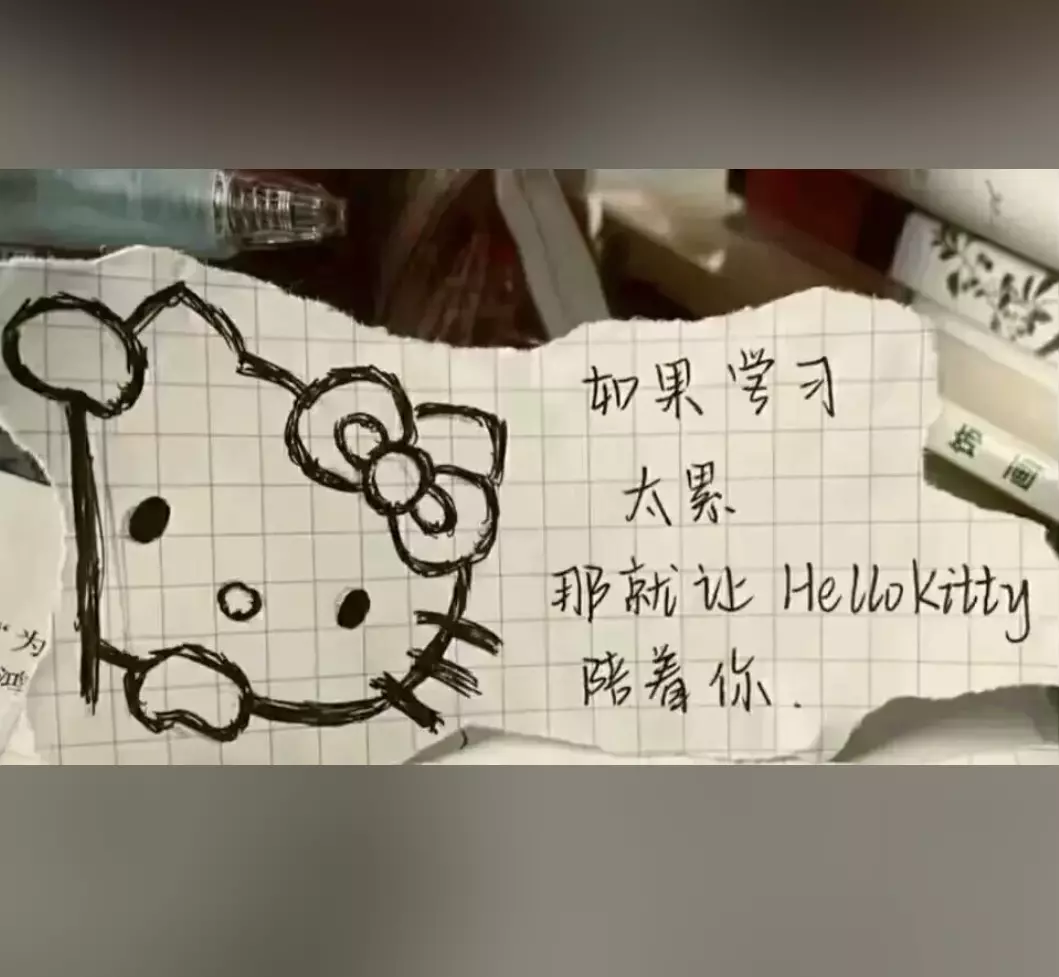 如果学习
太累
那就让 Hellokitty
陪着你.
"为